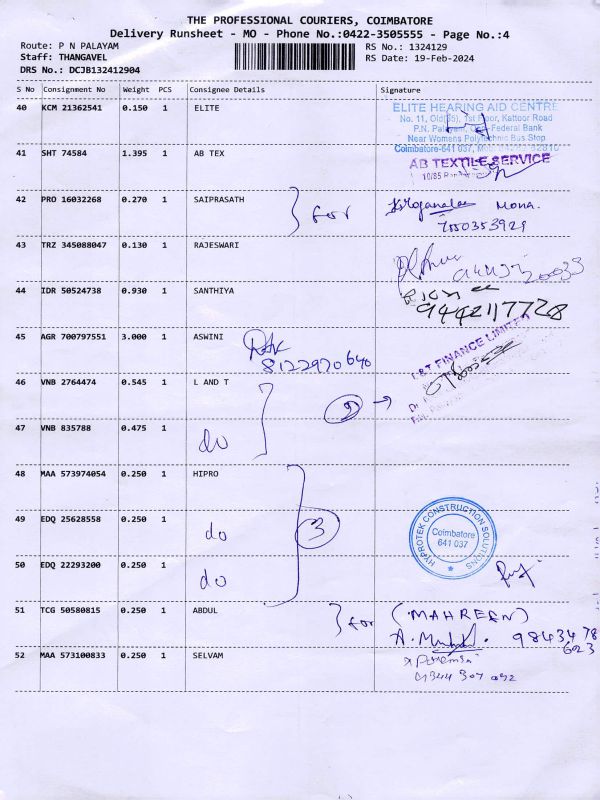 THE PROFESSIONAL COURIERS, COIMBATORE
Delivery Runsheet - MO - Phone No.:0422-3505555 - Page No.:4
Route: P N PALAYAM
Staff: THANGAVEL
DRS No.: DCJB132412904
RS No.: 1324129
RS Date: 19-Feb-2024
S No Consignment No Weight PCS Consignee Details Signature
40 KCM 21362541 0.150 1 ELITE
ELITE HEARING AID CENTRE
No. 11, Old(35), 1st Floor, Kattoor Road
P.N. Palayam, Opp. Federal Bank
Near Womens Polytechnic Bus Stop
Coimbatore-641 037,
41 SHT 74584 1.395 1 AB TEX
AB TEXTILE SERVICE
10/85
42 PRO 16032268 0.270 1 SAIPRASATH
for
Mona.
7550353929
43 TRZ 345088047 0.130 1 RAJESWARI
44 IDR 50524738 0.930 1 SANTHIYA
9442117728
45 AGR 700797551 3.000 1 ASWINI
8122970640
L&T FINANCE LIMITED
46 VNB 2764474 0.545 1 L AND T
2 →
47 VNB 835788 0.475 1
do
48 MAA 573974054 0.250 1 HIPRO
49 EDQ 25628558 0.250 1
do
3
HYPROTEK CONSTRUCTION SOLUTIONS
Coimbatore
641 037
50 EDQ 22293200 0.250 1
do
51 TCG 50580815 0.250 1 ABDUL
for
(MAHREEN)
9843478
623
52 MAA 573100833 0.250 1 SELVAM